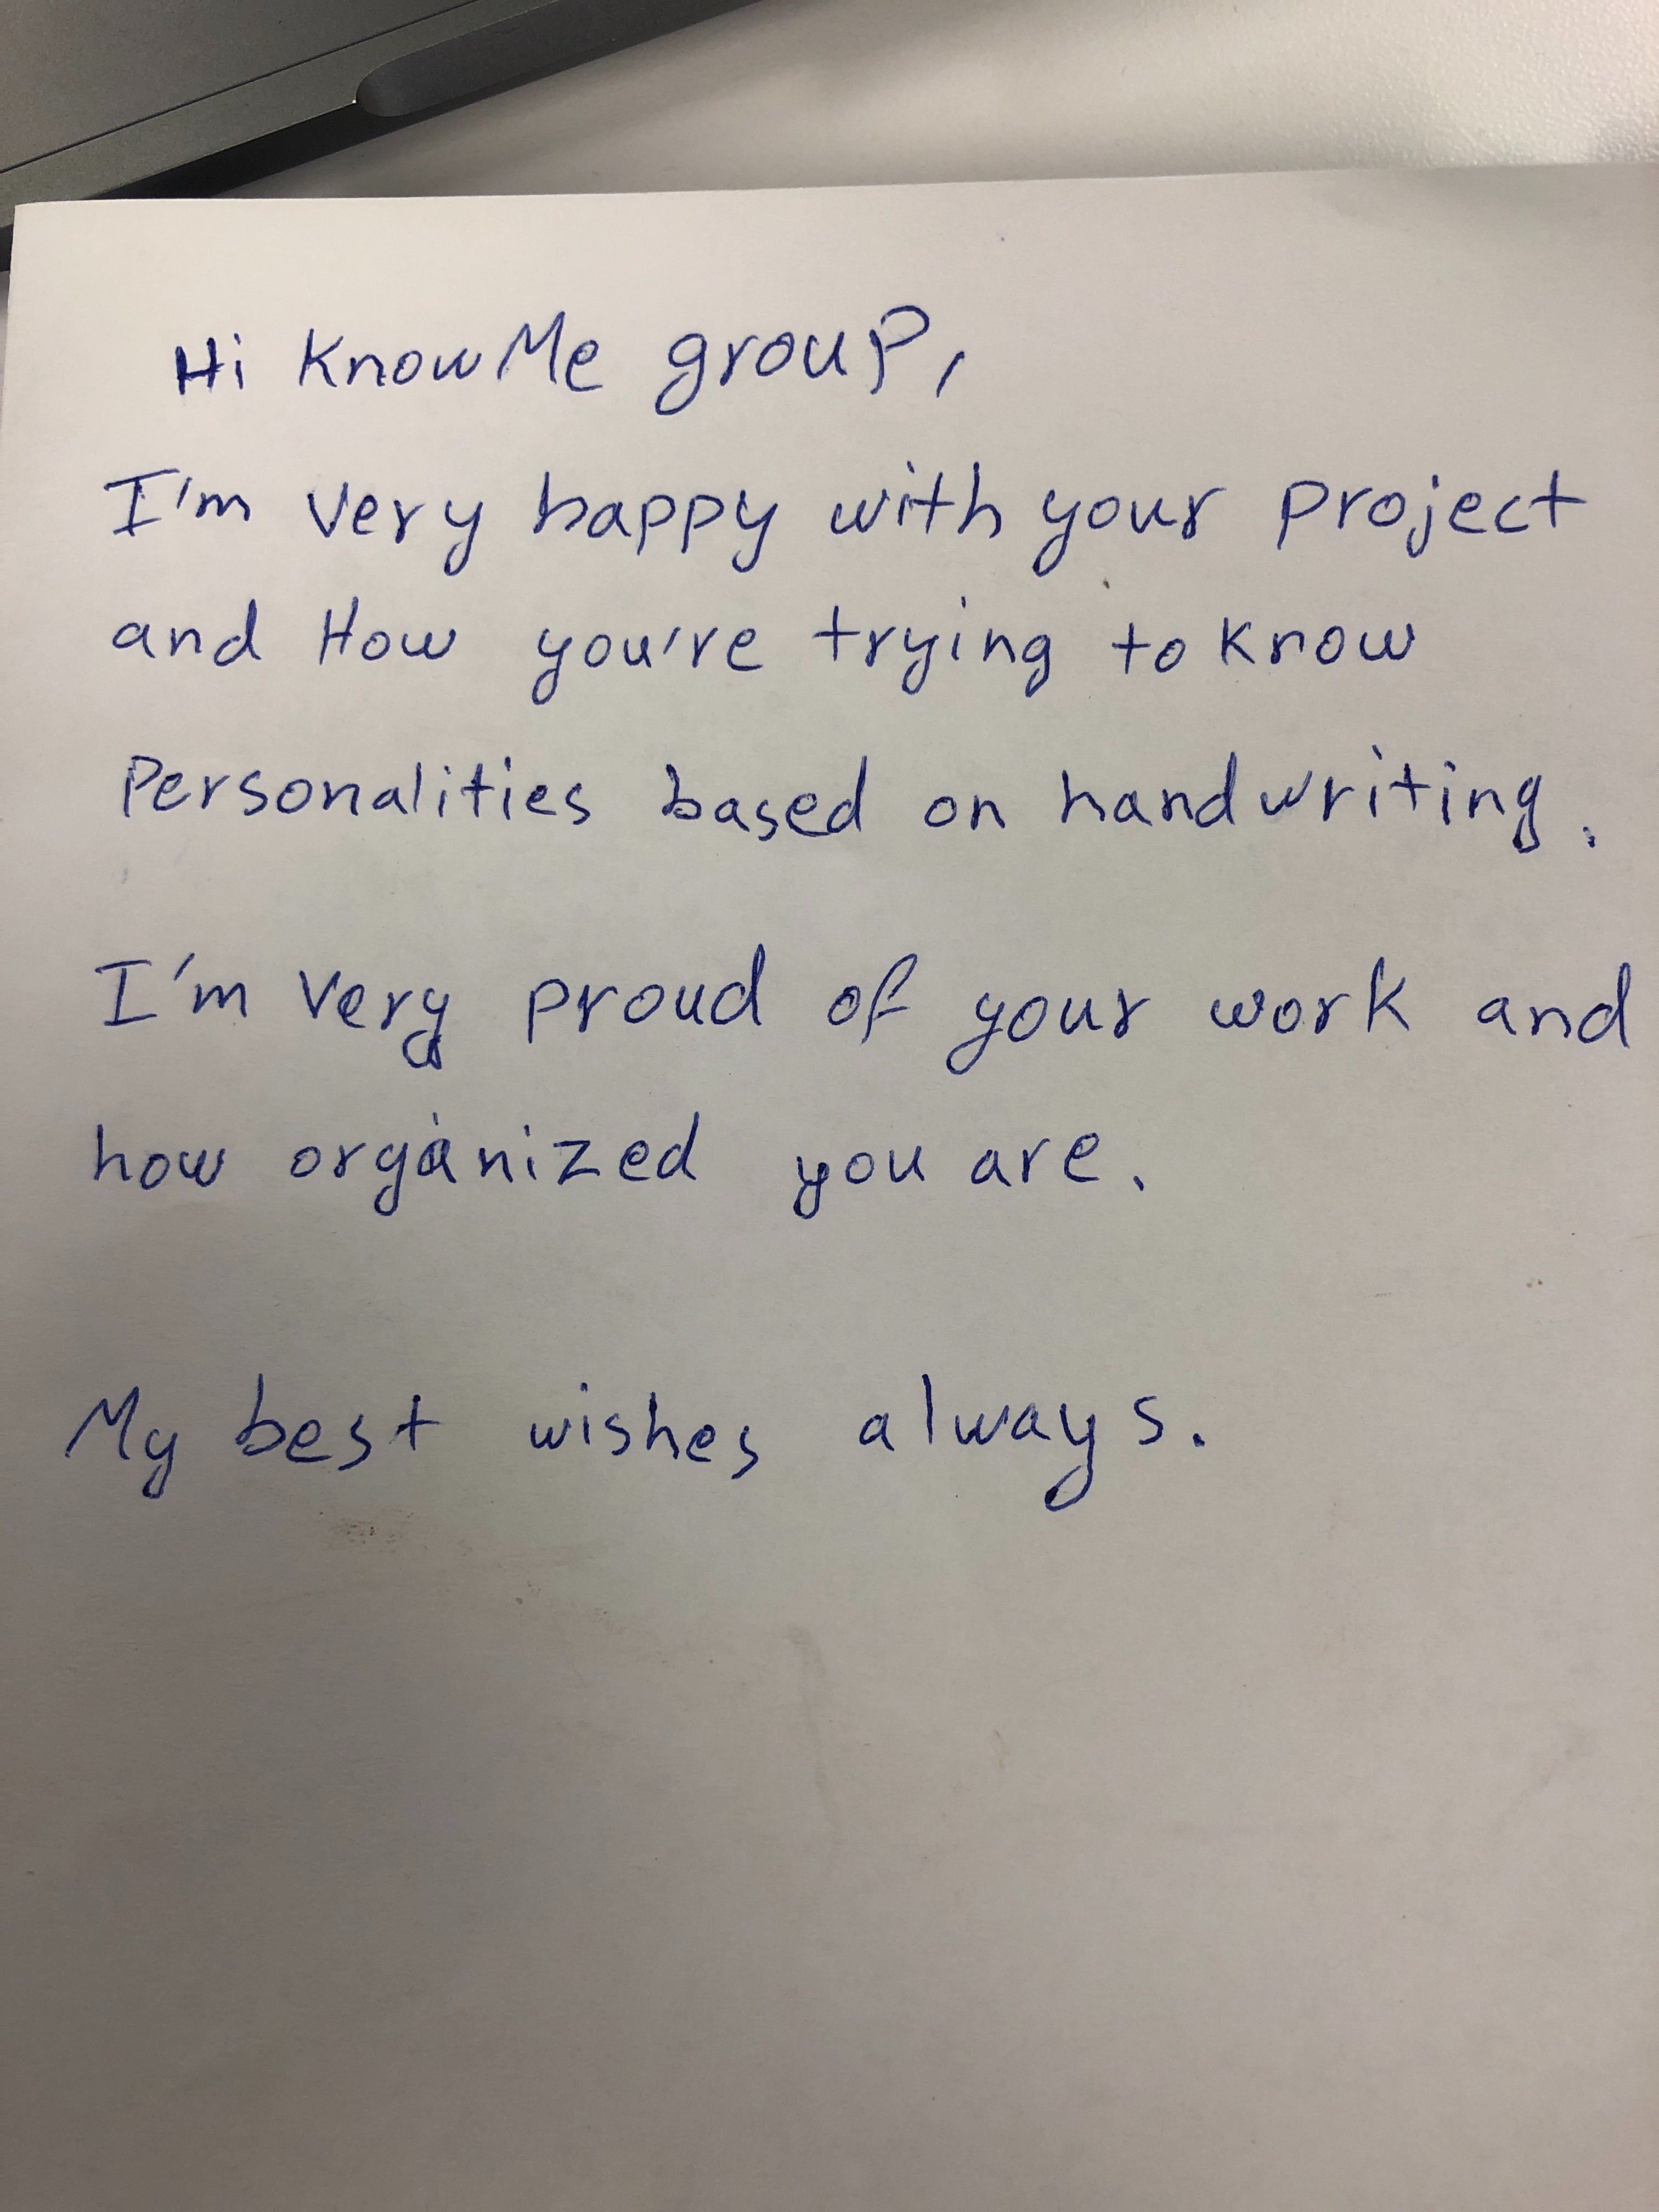 Hi KnowMe group,
I'm very happy with your project
and How you're trying to know
Personalities based on handwriting.
I'm very proud of your work and
how organized you are.
My best wishes always.